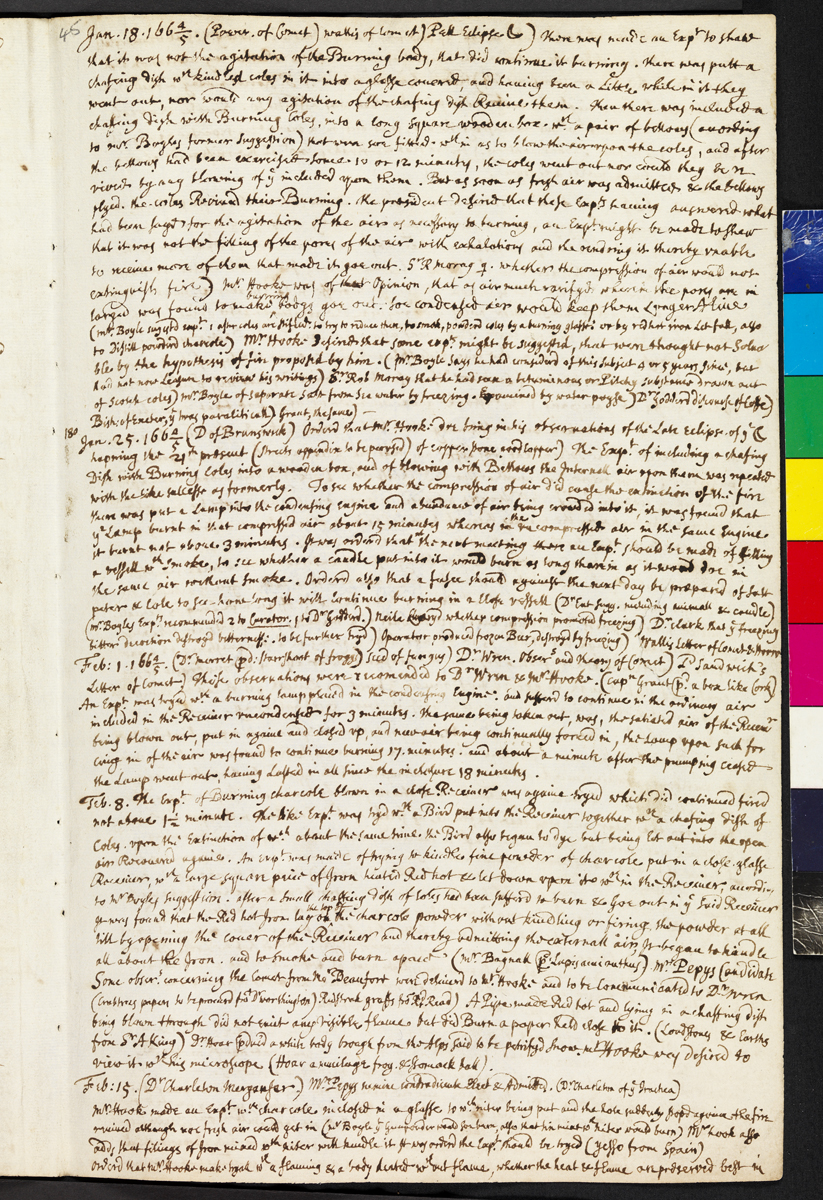 46 Jan. 18. 166 4/5. (Power. of Comet) wallis of Comet) Pell Eclipse ☾) There was made an Expt to shew
that it was not the agitation of the Burning body, that did continue it burning. there was putt a
chafing dish wth kindled coles in it into a glasse couered and having been a little while in it they
went out, nor would any agitation of the chafing dish Reuiue them. Then there was included a
chafing dish with Burning Coles, into a long square wooden box. wth a pair of bellows (according
to mr Boyles former Suggestion) that were soe fitted wthin as to blow the air upon the coles, and after
the bellows had been exercised some 10 or 12 minutes, the coles went out nor could they be re
vived by any blowing of ye included upon them. But as soon as fresh air was admitted & the bellows
plyed. the coles Revived their Burning. the president desired that these Expts having answered what
had been sayd for the agitation of the air as necessary to burning, an Expt might be made to shew
that it was not the filling of the pores of the air with exhalations and the rendring it therby unable
to receive more of them that made it goe out. Sr R moray q. whether the compression of air would not
extinguish fire) Mr Hooke was of Opinion, that as air much rarifyd wherin the pores are in
larged was found to make burning bodys goe out. soe condensed air would keep them Longer Alive
(mr Boyle sugestd expt: after coles are stifled to try to reduce them, to smoke, powderd coles by a burning glasse or by red hot iron Let fall, also
to Distill powderd charcole) Mr Hooke desired that some expt might be suggested, that were thought not Solu
ble by the hypothesis of fire proposed by him. (Mr Boyle says he had considerd of this subject 4 or 5 years since, but
had not now Leasure to review his writings) Sr Rob Moray that he had seen a bituminous or Pitchy substance drawn out
of Scotch coles) mr Boyle of separate Salt from Sea water by freezing. Examined by water poyse) Dr Goddard discourse of Coffee)
Bish. of Exeter, yt was paraliticall) Grant, the same) —
180 Jan. 25. 166 4/5 (D of Brunswick) Orderd that Mr Hooke doe bring in his observations of the Late Eclipse of ye ☾
hapning the 21th present (Streets appendix to be perused) of Copper stone good copper) The Expt of including a chafing
Dish with Burning Coles into a wooden box, and of blowing with Bellows the Internall air upon them was repeated
with the like successe as formerly. To see whether the compression of air did cause the extinction of the fire
there was put a Lamp into the condensing engine and abundance of air being crowded into it, it was found that
ye Lamp burnt in that compressed air about 15 minutes whereas in the uncompressed air in the same Engine
it burnt not above 3 minutes. It was orderd that the next meeting an Expt should be made of filling
a vessell wth smoke, to see whether a candle put into it would burn as long therin as it would doe in
the same air without smoke. Orderd also that a fusee should against the next day be prepared of Salt
peter & Cole to see how long it will continue burning in a Close vessell (Dr Ent sugg. including animall & candle)
(mr Boyles Expt recommended 2 to Curator. 1 to Dr Goddard.) Neile Enquird whether compression promoted freezing) Dr Clark that ye freezing
bitter decoction destroyd bitternesse. to be further tryd) Operator produced frozen Beer, destroyd by freezing) Wallis Letter of Comet & Horrox
Feb: 1. 166 4/5. (Dr merret prd: Starshoot of froggs) Seed of fungus) Dr Wren. Obserts and theory of Comet) Ld Sandwich's
Letter of Comet) These observations were recomended to Dr Wren & Mr Hooke. (Capt Grant pr. a box like Cork)
An Expt was tryed wth a burning lamp placed in the condensing Engine. and sufferd to continue in the ordinary air
included in the Receiver uncondensed for 3 minutes. the same being taken out, was, the satiated air of the Receivr
being blown out, put in againe and closed up, and new air being continually forced in, the Lamp upon such for
cing in of the air was found to continue burning 17. minutes. and about a minute after the pumping ceased
the Lamp went out, having lasted in all since the inclosure 18 minutes.
Feb. 8. The Expt of Burning charcole blown in a close Receiver was againe tryed which did continued fired
not above 1 1/2 minute. The like Expt was tryd wth a Bird put into the Receiver together wth a chafing dish of
Coles. upon the Extinction of wch about the same time the Bird also began to dye but being let out into the open
air Recovered againe. An expt was made of trying to kindle fine powder of charcole put in a close glasse
Receiver, wth a large square piece of Iron heated Red hot & let down upon it wthin the Receiver according
to Mr Boyles Suggestion. after a small chaffing dish of Coles had been sufferd to burn & goe out in ye said Receiver
It was found that the Red hot Iron lay on the top of the charcole powder without kindling or firing the powder at all
till by opening the cover of the Receiver and thereby admitting the externall air, It began to kindle
all about the Iron. and to smoke and burn apace (mr Bagnall pr Lapis amianthus) Mr Pepys Candidate
Some obsert concerning the Comet from Mr Beaufort were delivered to Mr Hooke and to be Communicated to Dr Wren
papers to be procurd from Dr worthington) A Pipe made Red hot and lying in a chaffing dish
being blown through did not emit any visible flame but did Burn a paper held close to it. (Loadstones & Earths
from Sr A King) Dr Hoar prducd a white body brough from the Alps said to be petrifyd Snow, Mr Hooke was desired to
view it wth his microscope (Hoar a mucilage frog, & stomack ball).
Feb: 15. (Dr Charleton Merganser) Mr Pepys nemine contradicente Elect & Admitted. (Dr Charleton of ye)
Mr Hooke made an Expt wth charcole inclosed in a glasse to wch niter being put and the hole suddenly stopd againe the fire
revived although noe fresh air could get in (mr Boyle yt Gunpowder would soe burn, also that in niter would burn) Mr hook also
adds that filings of Iron mixed wth niter will kindle it twas orderd the Expt should be tryed (Yesso from Spain)
Orderd that Mr Hooke make tryall wth a flaming & a body heated wthout flame, whether the heat & flame are preserved best in